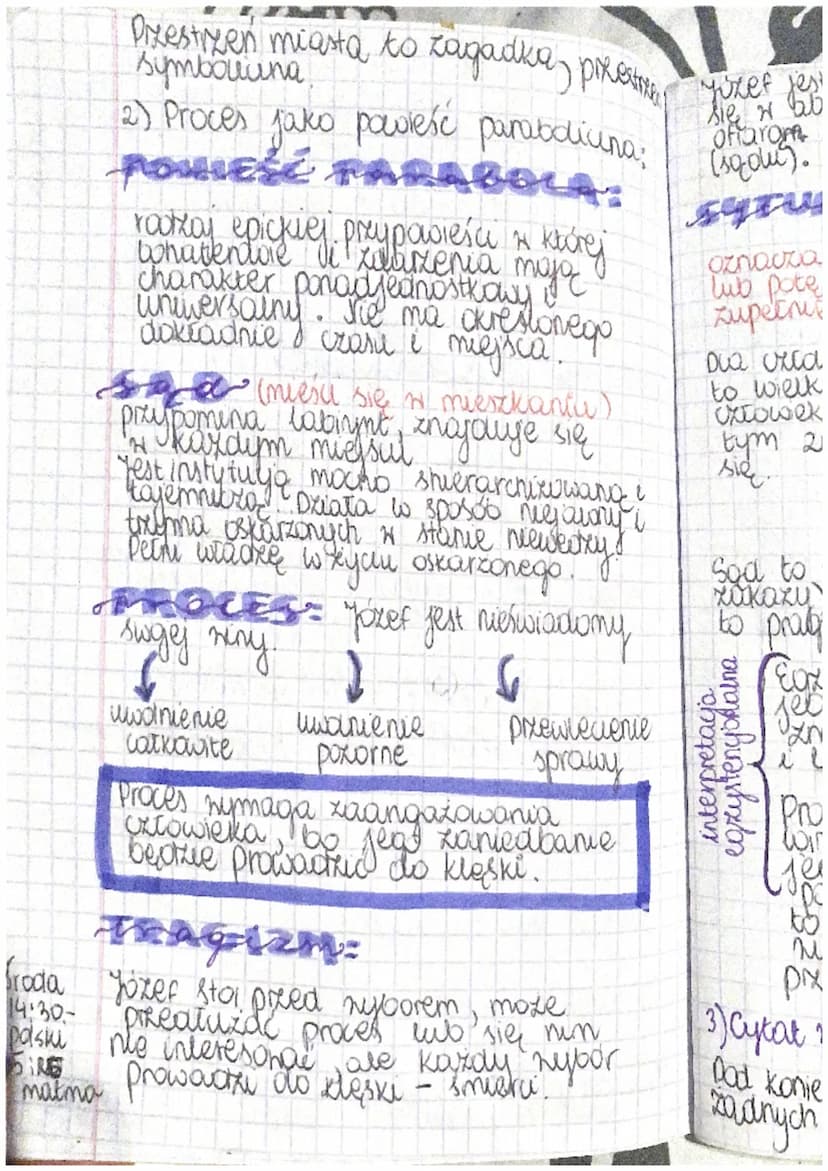 Przestrzeń miasta to zagadka, przestrzeń
symboliczna
2) Proces jako powieść paraboliczna:
POWIEŚĆ PARABOLA:
rodzaj epickiej przypowieści w której
bohaterowie i zdarzenia mają
charakter ponadjednostkowy i
uniwersalny. Nie ma określonego
dokładnie czasu i miejsca.
Sąd (mieści się w mieszkaniu)
przypomina labirynt, znajduje się
w każdym miejscu
Jest instytucją mocno zhierarchizowaną i
tajemniczą. Działa w sposób niejawny i
trzyma oskarżonych w stanie niewiedzy.
Pełni władzę w życiu oskarżonego.
PROCES: Józef jest nieświadomy
swojej winy.
uwolnienie całkowite
uwolnienie pozorne
przewleczenie sprawy
Proces wymaga zaangażowania
człowieka, bo jego zaniedbanie
będzie prowadzić do klęski.
TRAGIZM:
Józef stoi przed wyborem, może
przedłużać proces lub się nim
nie interesować, ale każdy wybór
prowadzi do klęski - śmierci.
środa
14:30-
polski
matma
Józef jes
się w ab
ofiarom
(sądu).
SYTU
oznacza
lub potę
zupełnie
Dla czło
to wielk
człowiek
tym z
się.
Sąd to
zakazu
to prag
interpretacja
egzystencjalna
Egz
jeo
zn
i
Pro
win
je
po
to
prz
3) Cytat
Pod konie
żadnych